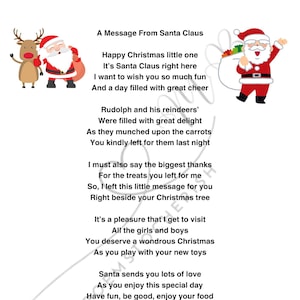 A Message From Santa Claus
Happy Christmas little one
It's Santa Claus right here
I want to wish you so much fun
And a day filled with great cheer
Rudolph and his reindeers'
Were filled with great delight
As they munched upon the carrots
You kindly left for them last night
I must also say the biggest thanks
For the treats you left for me
So, I left this little message for you
Right beside your Christmas tree
It's a pleasure that I get to visit
All the girls and boys
You deserve a wondrous Christmas
As you play with your new toys
Santa sends you lots of love
As you enjoy this special day
Have fun, be good, enjoy your food